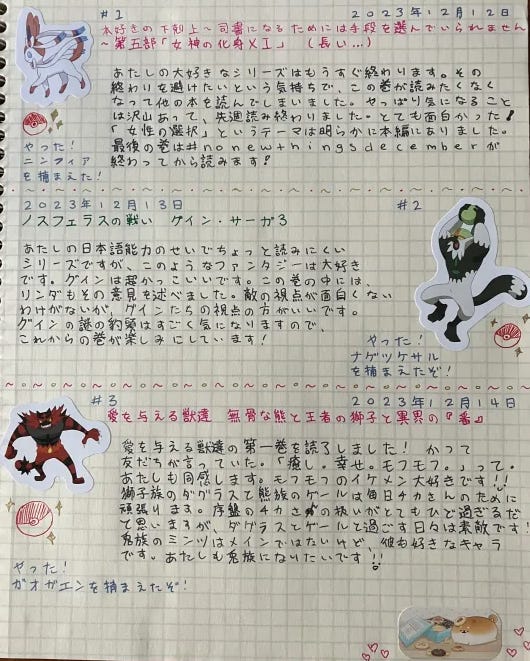 #1 2023年12月12日
本好きの下剋上～司書になるためには手段を選んでいられません
～第五部「女神の化身XI」 (長い...)
あたしの大好きなシリーズはもうすぐ終わります。その
終わりを避けたいという気持ちで、この巻が読みたくなく
なって他の本を読んでしまいました。やっぱり気になること
は沢山あって、先週読み終わりました。とても面白かった!
「女性の選択」というテーマは明らかに本編にありました。
最後の巻は#nonewthingsdecemberが
終わってから読みます!
やった!
ニンフィア
を捕まえた!
2023年12月13日 #2
ノスフェラスの戦い グイン・サーガ3
あたしの日本語能力のせいでちょっと読みにくい
シリーズですが、このようなファンタジーは大好き
です。グインは超かっこいいです。この巻の中には、
リンダもその意見を述べました。敵の視点が面白くない
わけがないが、グインたちの視点の方がいいです。
グインの謎の約類はすごく気になりますので、
これからの巻が楽しみにしています!
やった!
ナゲツケサル
を捕まえたぞ!
#3 2023年12月14日
愛を与える獣達 無骨な熊と王者の獅子と異界の『番』
愛を与える獣達の第一巻を読了しました! かつて
友だちが言っていた。「癒し。幸せ。モフモフ。」って。
あたしも同感します。モフモフのイケメン大好きです!!
獅子族のダグラスと熊族のゲールは毎日チカさんのために
頑張ります。序盤のチカさの扱いがとてもひど過ぎるだ
て思いますが、ダグラスとゲールと過ごす日々は素敵です!
兎族のミンツはメインではないけど、彼も好きなキャラ
です。あたしも兎族になりたいです!!
やった!
ガオガエンを捕まえたぞ!